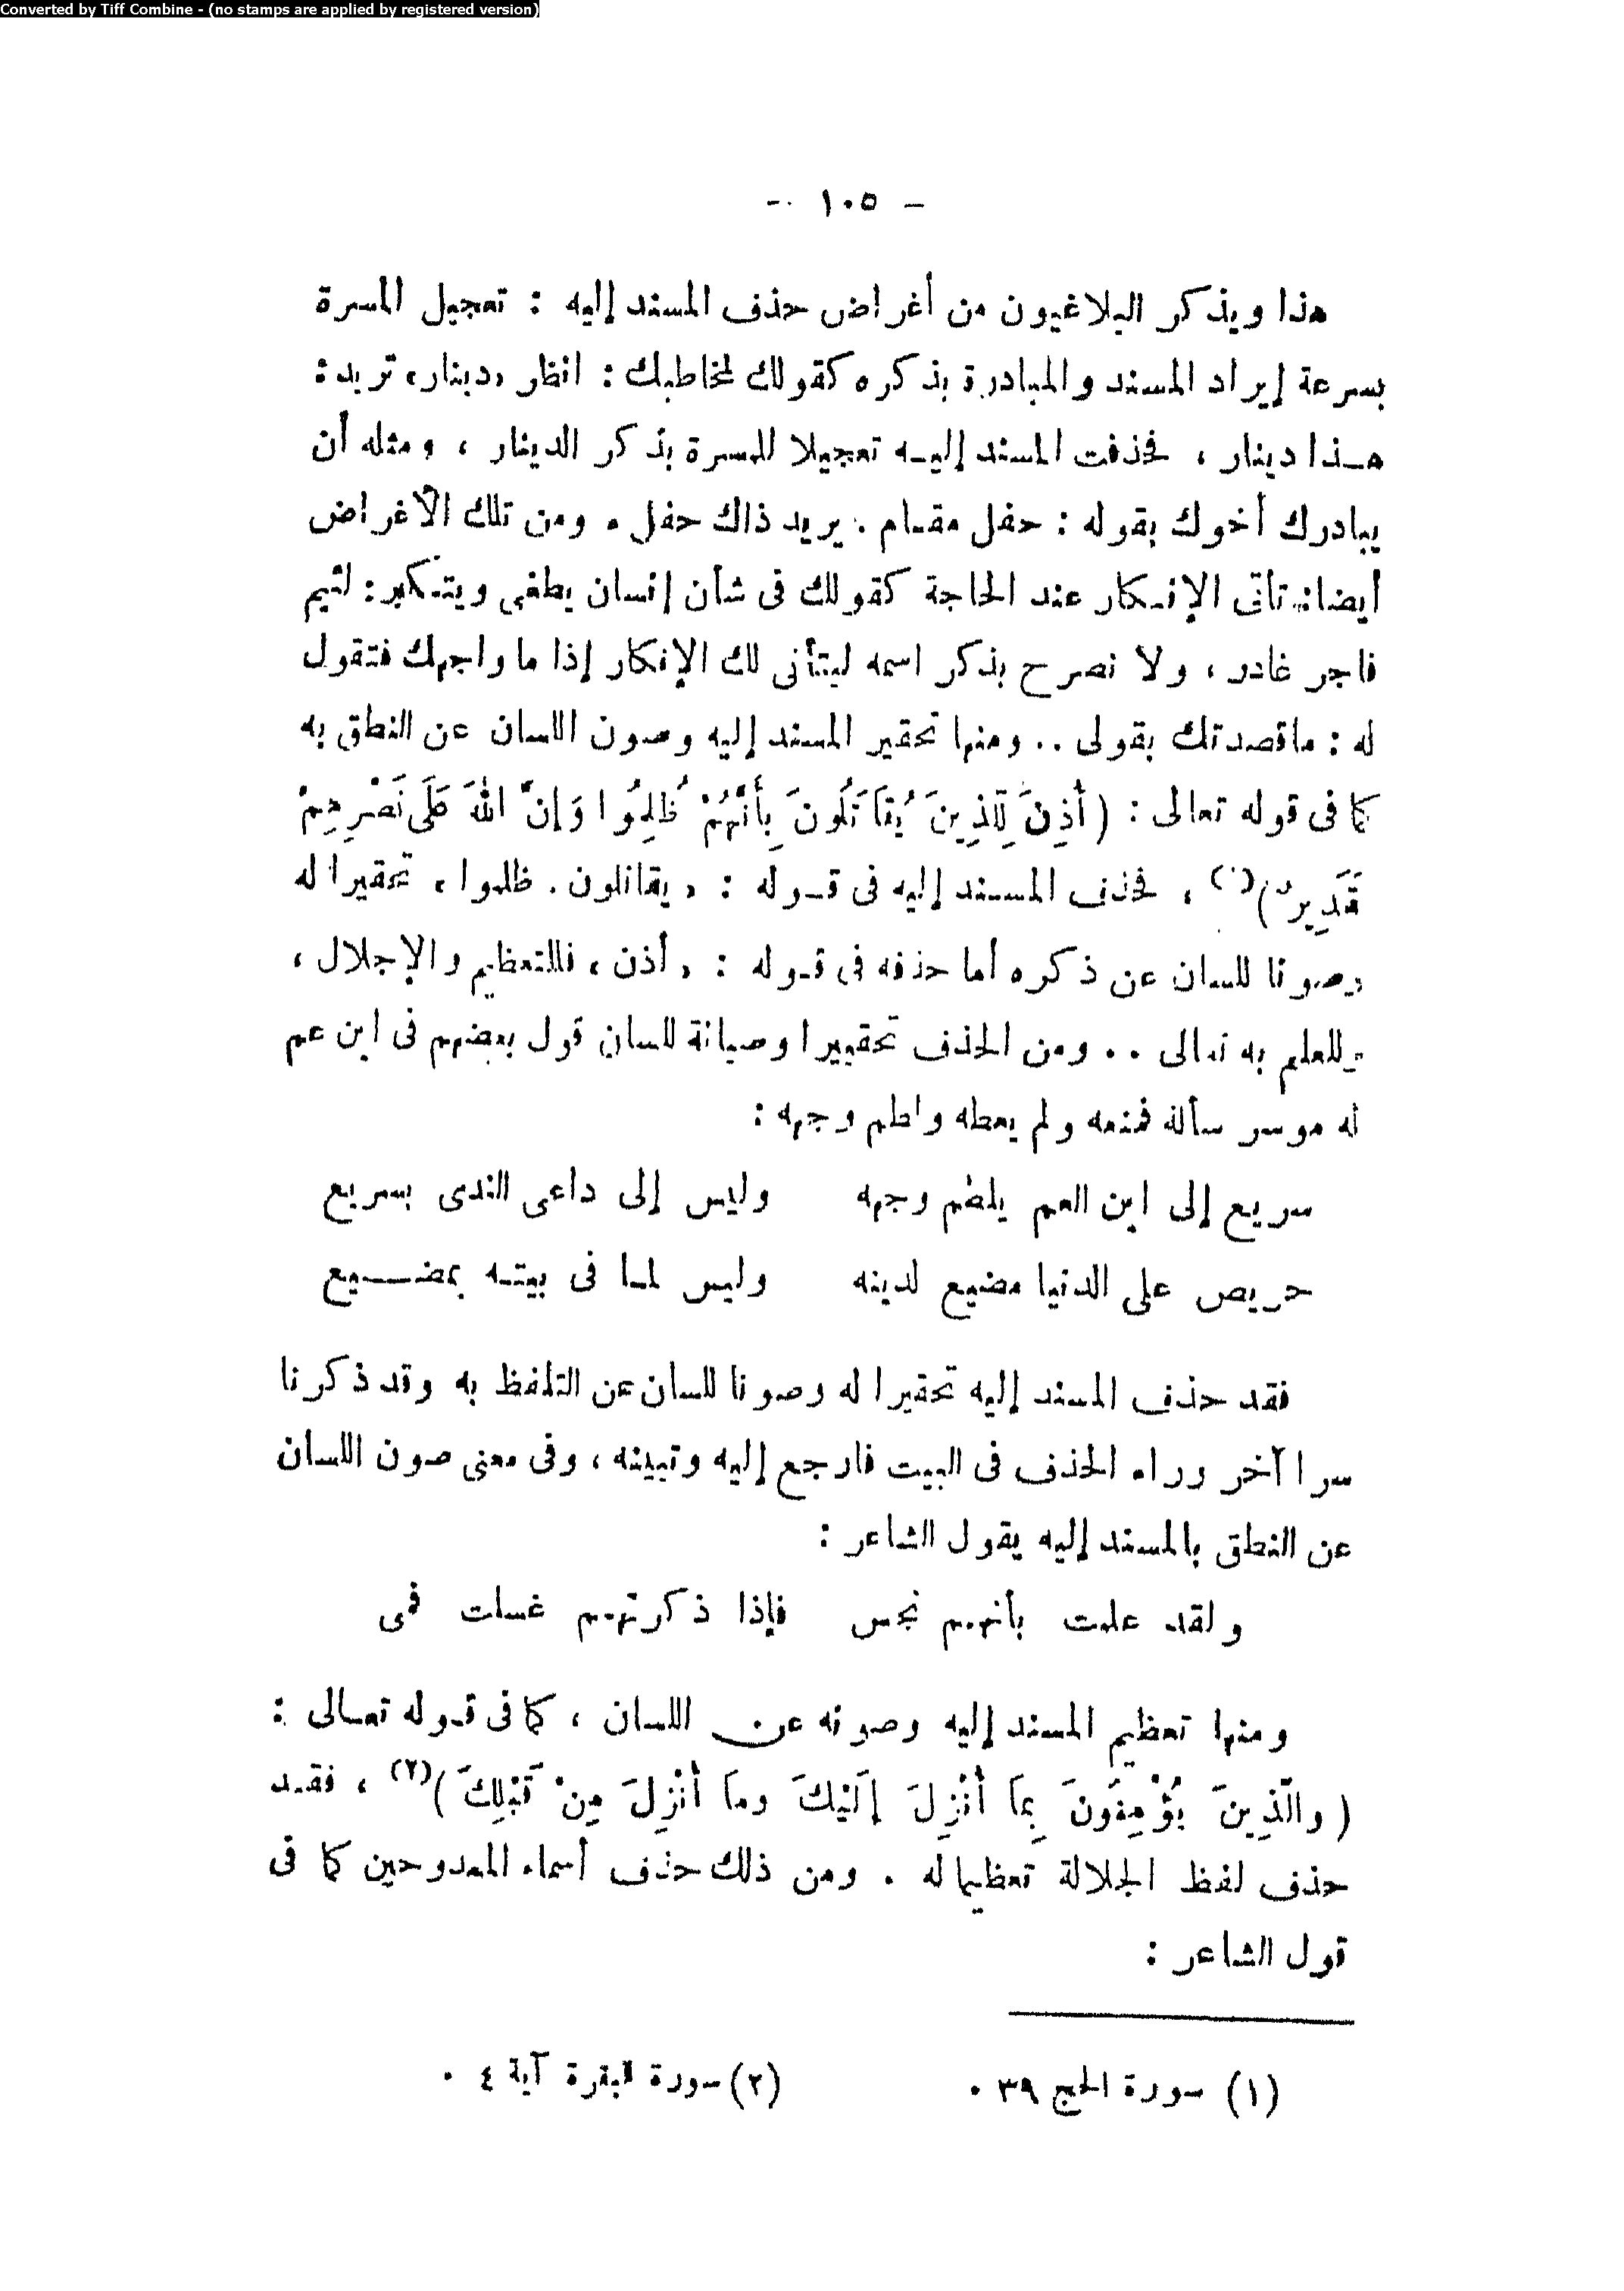 Converted by Tiff Combine - (no stamps are applied by registered version)
- ١٠٥ -
هذا ويذكر البلاغيون من أغراض حذف المسند إليه : تعجيل المسرة
بسرعة إيراد المسند والمبادرة بذكره كقولك لمخاطبك : انظر «دينار» تريد :
هـذا دينار ، فحذفت المسند إليـه تعجيلا للمسرة بذكر الدينار ، ومثله أن
يبادرك أخوك بقوله : حفل مقـام . يريد ذاك حفل . ومن تلك الأغراض
أيضا : تأتى الإنـكار عند الحاجة كقولك فى شأن إنسان يطغى ويتـكبر : لئيم
فاجر غادر ، ولا نصرح بذكر اسمه ليتأنى لك الإنكار إذا ما واجهك فتقول
له : ماقصدتك بقولى .. ومنها تحقير المسند إليه وصون اللسان عن النطق به
كما فى قوله تعالى : ( أُذِنَ لِلَّذِينَ يُقَاتَلُونَ بِأَنَّهُمْ ظُلِمُوا وَإِنَّ اللهَ عَلَى نَصْرِهِمْ
قَدَيرٌ )(١) ، فحذف المسـند إليه فى قـوله : « يقاتلون . ظلموا » تحقيرا له
وصونا للسان عن ذكره أما حذفه فى قـوله : « أذن » فللتعظيم والإجلال ،
وللعلم به تعالى .. ومن الحذف تحقييرا وصيانة للسان قول بعضهم فى ابن عم
له موسر سأله فمنعه ولم يعطه ولطم وجهه :
سريع إلى ابن العم يلطم وجهه وليس إلى داعى الندى بسريع
حريص على الدنيا مضيع لدينه وليس لمـا فى بيتـه بمضـــيع
فقد حذف المسند إليه تحقيرا له وصونا للسان عن التلفظ به وقد ذكرنا
سرا آخر وراء الحذف فى البيت فارجع إليه وتبينه ، وفى معنى صون اللسان
عن النطق بالمسند إليه يقول الشاعر :
ولقد علمت بأنهم نجس فإذا ذكرتهم غسلت فمى
ومنها تعظيم المسند إليه وصونه عن اللسان ، كما فى قـوله تعـالى :
( والَّذِينَ يُؤْمِنُونَ بِمَا أُنْزِلَ إِلَيْكَ وما أُنْزِلَ مِنْ قَبْلِكَ )(٢) ، فقـد
حذف لفظ الجلالة تعظيما له . ومن ذلك حذف أسماء الممدوحين كما فى
قول الشاعر :
(١) سورة الحج ٣٩ .
(٢) سورة البقرة آية ٤ .